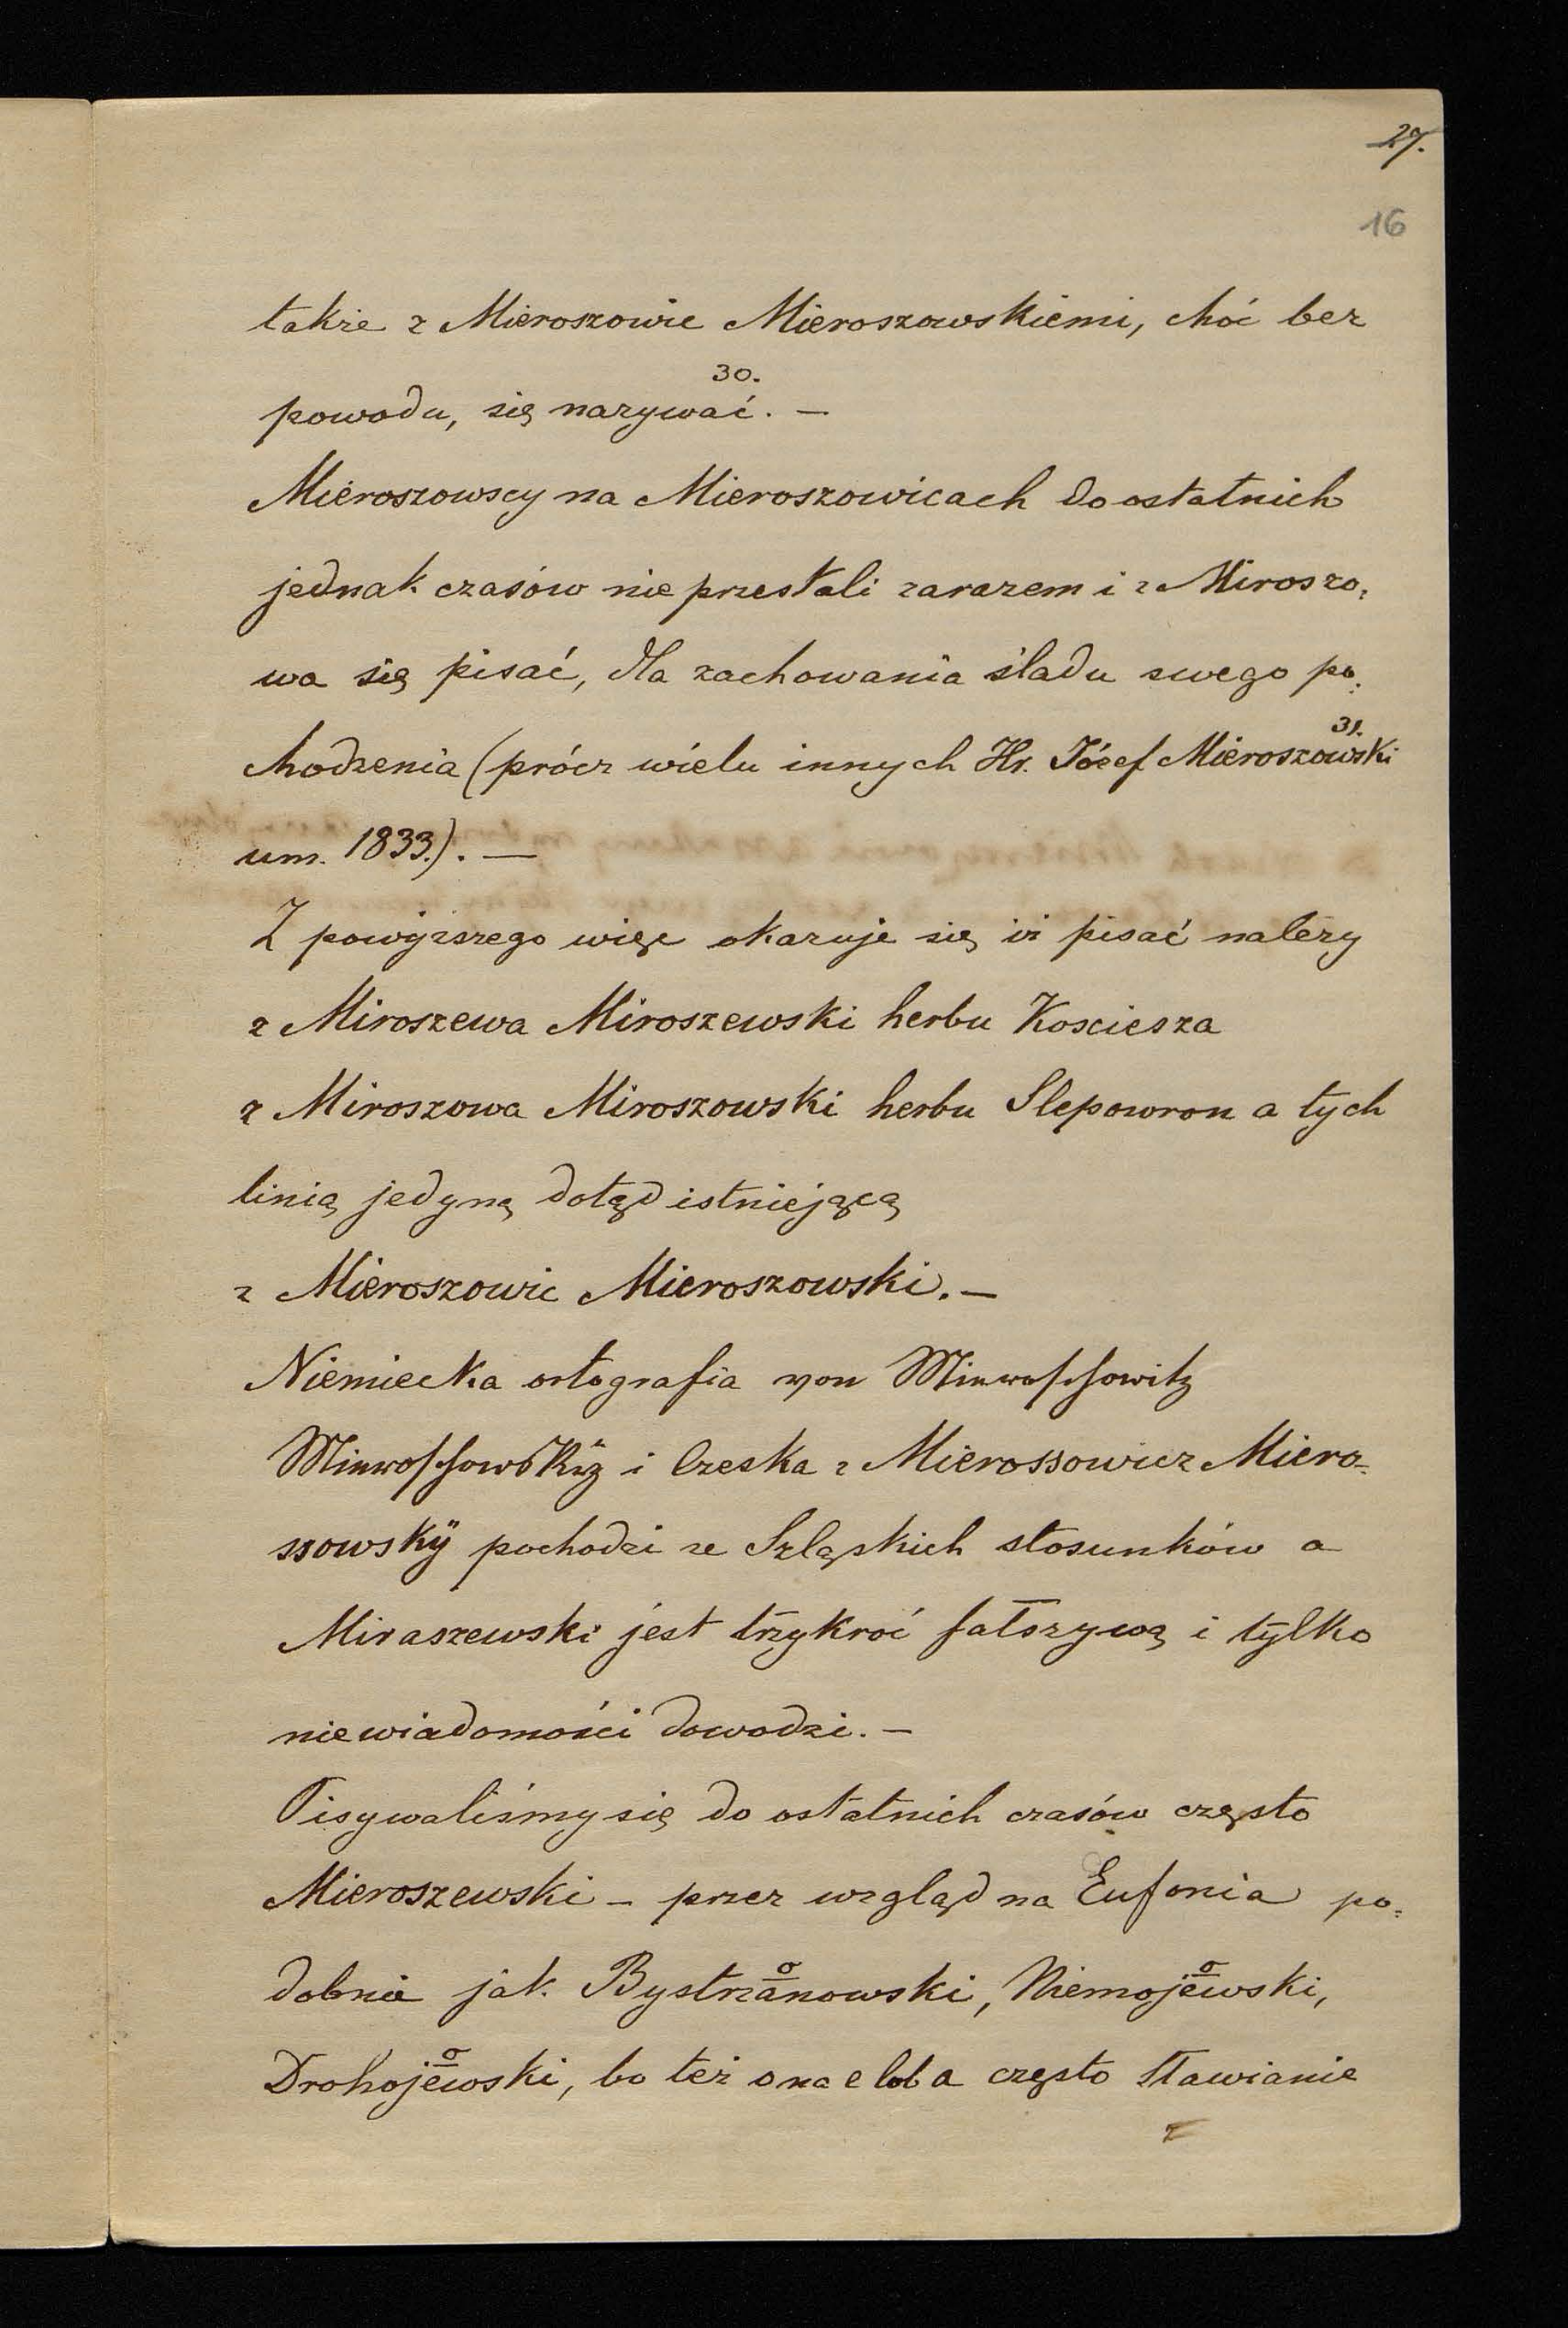 27.
16
także z Mieroszowic Mieroszowskiemi, choć bez
powodu, się nazywać. 30. —
Mieroszowscy na Mieroszowicach do ostatnich
jednak czasów nie przestali zarazem i z Miroszo=
wa się pisać, dla zachowania śladu swego po=
chodzenia (prócz wielu innych Hr. Józef Mieroszowski 31.
um. 1833.). —
Z powyższego więc okazuje się iż pisać należy
z Miroszewa Miroszewski herbu Kosciesza
z Miroszowa Miroszowski herbu Slepowron a tych
linią jedyną dotąd istniejącą
z Mieroszowic Mieroszowski. —
Niemiecka ortografia von Mieroschowitz
Mieroschowskÿ i Czeska z Mierossowicz Miero=
ssowskÿ pochodzi ze Szląskich stosunków a
Miraszewski jest trzykroć fałszywą i tylko
niewiadomości dowodzi. —
Pisywaliśmy się do ostatnich czasów często
Mieroszewski – przez wzgląd na Eufonia po=
dobnie jak Bystrzanowski, o Niemojewski, o
Drohojewski, o bo też o na e lub a często Sławianie
z